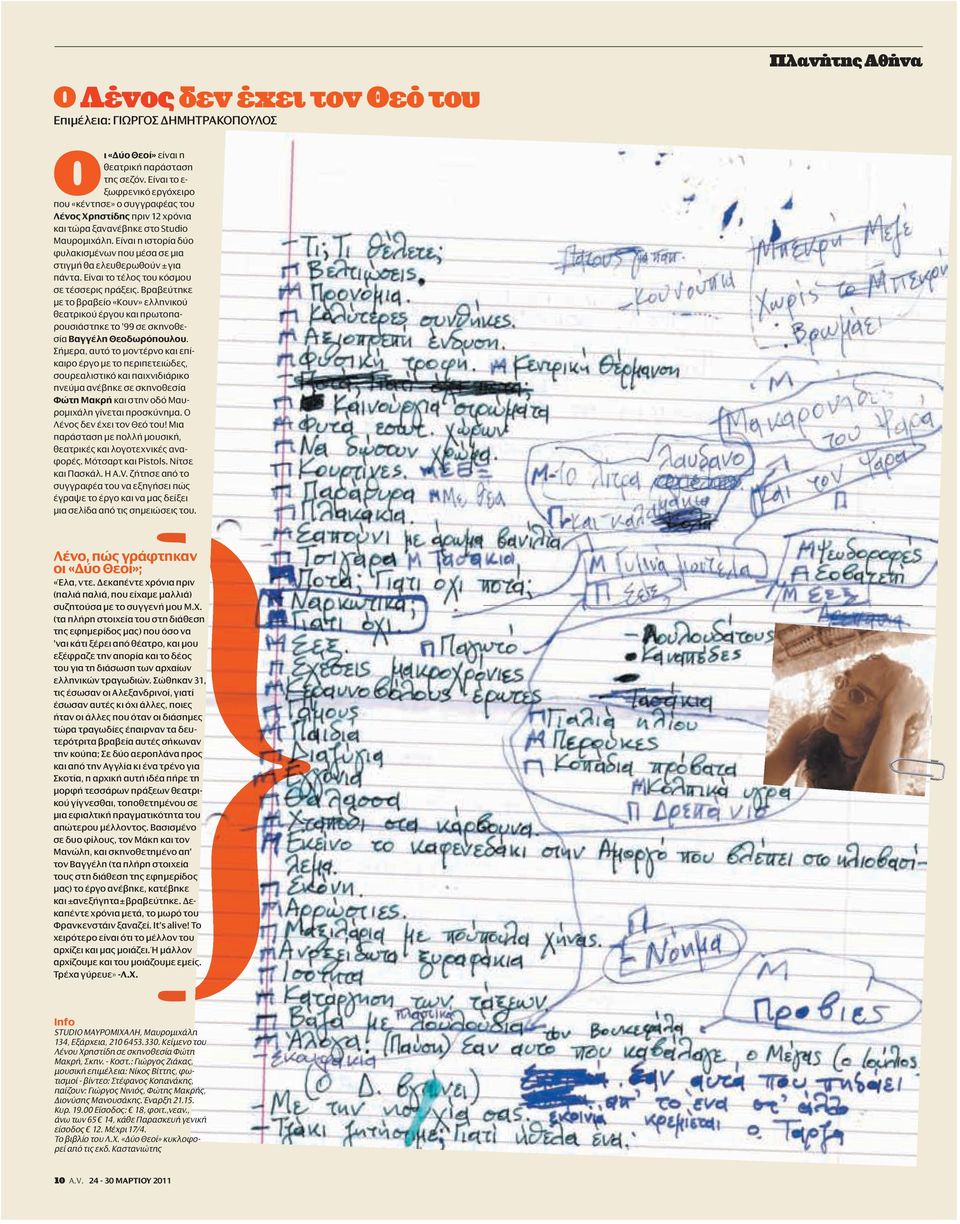 Πλανήτης Αθήνα
Ο Λένος δεν έχει τον Θεό του
Επιμέλεια: ΓΙΩΡΓΟΣ ΔΗΜΗΤΡΑΚΟΠΟΥΛΟΣ
Οι «Δύο Θεοί» είναι η
θεατρική παράσταση
της σεζόν. Είναι το ε-
ξωφρενικό εργόχειρο
που «κέντησε» ο συγγραφέας του
Λένος Χρηστίδης πριν 12 χρόνια
και τώρα ξανανέβηκε στο Studio
Μαυρομιχάλη. Είναι η ιστορία δύο
φυλακισμένων που μέσα σε μια
στιγμή θα ελευθερωθούν ± για
πάντα. Είναι το τέλος του κόσμου
σε τέσσερις πράξεις. Βραβεύτηκε
με το βραβείο «Κουν» ελληνικού
θεατρικού έργου και πρωτοπα-
ρουσιάστηκε το ’99 σε σκηνοθε-
σία Βαγγέλη Θεοδωρόπουλου.
Σήμερα, αυτό το μοντέρνο και επί-
καιρο έργο με το περιπετειώδες,
σουρεαλιστικό και παιχνιδιάρικο
πνεύμα ανέβηκε σε σκηνοθεσία
Φώτη Μακρή και στην οδό Μαυ-
ρομιχάλη γίνεται προσκύνημα. Ο
Λένος δεν έχει τον Θεό του! Μια
παράσταση με πολλή μουσική,
θεατρικές και λογοτεχνικές ανα-
φορές. Μότσαρτ και Pistols. Νίτσε
και Πασκάλ. Η A.V. ζήτησε από το
συγγραφέα του να εξηγήσει πώς
έγραψε το έργο και να μας δείξει
μια σελίδα από τις σημειώσεις του.
Λένο, πώς γράφτηκαν
οι «Δύο Θεοί»;
«Έλα, ντε. Δεκαπέντε χρόνια πριν
(παλιά παλιά, που είχαμε μαλλιά)
συζητούσα με το συγγενή μου Μ.Χ.
(τα πλήρη στοιχεία του στη διάθεση
της εφημερίδος μας) που όσο να
’ναι κάτι ξέρει από θέατρο, και μου
εξέφραζε την απορία και το δέος
του για τη διάσωση των αρχαίων
ελληνικών τραγωδιών. Σώθηκαν 31,
τις έσωσαν οι Αλεξανδρινοί, γιατί
έσωσαν αυτές κι όχι άλλες, ποιες
ήταν οι άλλες που όταν οι διάσημες
τώρα τραγωδίες έπαιρναν τα δευ-
τερότριτα βραβεία αυτές σήκωναν
την κούπα; Σε δύο αεροπλάνα προς
και από την Αγγλία κι ένα τρένο για
Σκοτία, η αρχική αυτή ιδέα πήρε τη
μορφή τεσσάρων πράξεων θεατρι-
κού γίγνεσθαι, τοποθετημένου σε
μια εφιαλτική πραγματικότητα του
απώτερου μέλλοντος. Βασισμένο
σε δυο φίλους, τον Μάκη και τον
Μανώλη, και σκηνοθετημένο απ’
τον Βαγγέλη (τα πλήρη στοιχεία
τους στη διάθεση της εφημερίδος
μας) το έργο ανέβηκε, κατέβηκε
και ±ανεξήγητα± βραβεύτηκε. Δε-
καπέντε χρόνια μετά, το μωρό του
Φρανκενστάιν ξαναζεί. It’s alive! Το
χειρότερο είναι ότι το μέλλον του
αρχίζει και μας μοιάζει. Ή μάλλον
αρχίζουμε και του μοιάζουμε εμείς.
Τρέχα γύρευε» -Λ.Χ.
Info
STUDIO ΜΑΥΡΟΜΙΧΑΛΗ, Μαυρομιχάλη
134, Εξάρχεια, 210 6453.330. Κείμενο του
Λένου Χρηστίδη σε σκηνοθεσία Φώτη
Μακρή, Σκην. - Κοστ.: Γιώργος Ζιάκας,
μουσική επιμέλεια: Νίκος Βίττης, φω-
τισμοί - βίντεο: Στέφανος Κοπανάκης,
παίζουν: Γιώργος Νινιός, Φώτης Μακρής,
Διονύσης Μανουσάκης. Έναρξη 21.15.
Κυρ. 19.00 Είσοδος: € 18, φοιτ.,νεαν.,
άνω των 65 € 14, κάθε Παρασκευή γενική
είσοδος € 12. Μέχρι 17/4.
Το βιβλίο του Λ.Χ. «Δύο Θεοί» κυκλοφο-
ρεί από τις εκδ. Καστανιώτης
- Τι; Τι θέλετε;
Π Βελτιώσεις.
Π Προνόμια.
Π Καλύτερες συνθήκες.
Π Αξιοπρεπή ένδυση.
Π Φυσική τροφή. Μ Κεντρική Θέρμανση
Καινούργια στρώματα
Π Φυτά εσωτ. χώρων
Π Να δώσουν χρώμα.
Π Κουρτίνες.
Π Παράθυρα Μ Με θέα
Π Πλακάκια.
Π Σαπούνι με άρωμα βανίλια
Π Τσιγάρα Μ Τασάκια
Π Ποτά; Γιατί όχι ποτά;
Ναρκωτικά;
Γιατί όχι.
ΕΕΕ. Π Παγωτό
Σχέσεις μακροχρόνιες
Κεραυνοβόλους έρωτες
Γάμους
Παιδιά
Διαζύγια
Εγγόνια
Θάλασσα
Χταπόδι στα κάρβουνα.
Εκείνο το καφενεδάκι στην Αμοργό που βλέπει στο ηλιοβασί-
λεμα.
Π Σκόνη.
Μ Αρρώστιες.
Π Μαξιλάρια με πούπουλα χήνας.
Μ Ανοξείδωτα ξυραφάκια
Π Ισότητα
Π Κατάργηση των τάξεων
Βάζα με πλαστικά λουλούδια
Άλογα! (Παύση) Εάν αυτό που καβάλαγε ο Μέγας (ο Ιούλιος
τον Βουκεφάλα
(Ο Δ. βγαίνει) εάν αυτά που πηδάει
απ' το ένα στ' άλλο
- Με την υγεία σας. εκρίνια κρέμεται ο Ταρζά
- Τζάκι ζητήσαμε; Γιατί ήθελα ένα.
- Κουνούπια
Μπενρή Μεγέ
Χωρίς το Μπενρύ
. Βρωμάει
Μ
Μακαρονάδα
του Ψαρά
Και τον Ψαρά
Π
Μ-10 λίτρα λαύδανο
Π-Και καλαμάκια
Μ Ψευδοροφές
Μ ΕΕΕ
Π ΕΕΕ
- Λουλουδάτους
• Καναπέδες
Τασάκια
Π Γιαλιά ηλίου
Μ Περούκες
Π Κοπάδια πρόβατα
Μ Κολπικά υγρά
Π Δρεπάνια
Π
- Νόημα
Μ
Προβιές
10 A.V. 24 - 30 ΜΑΡΤΙΟΥ 2011